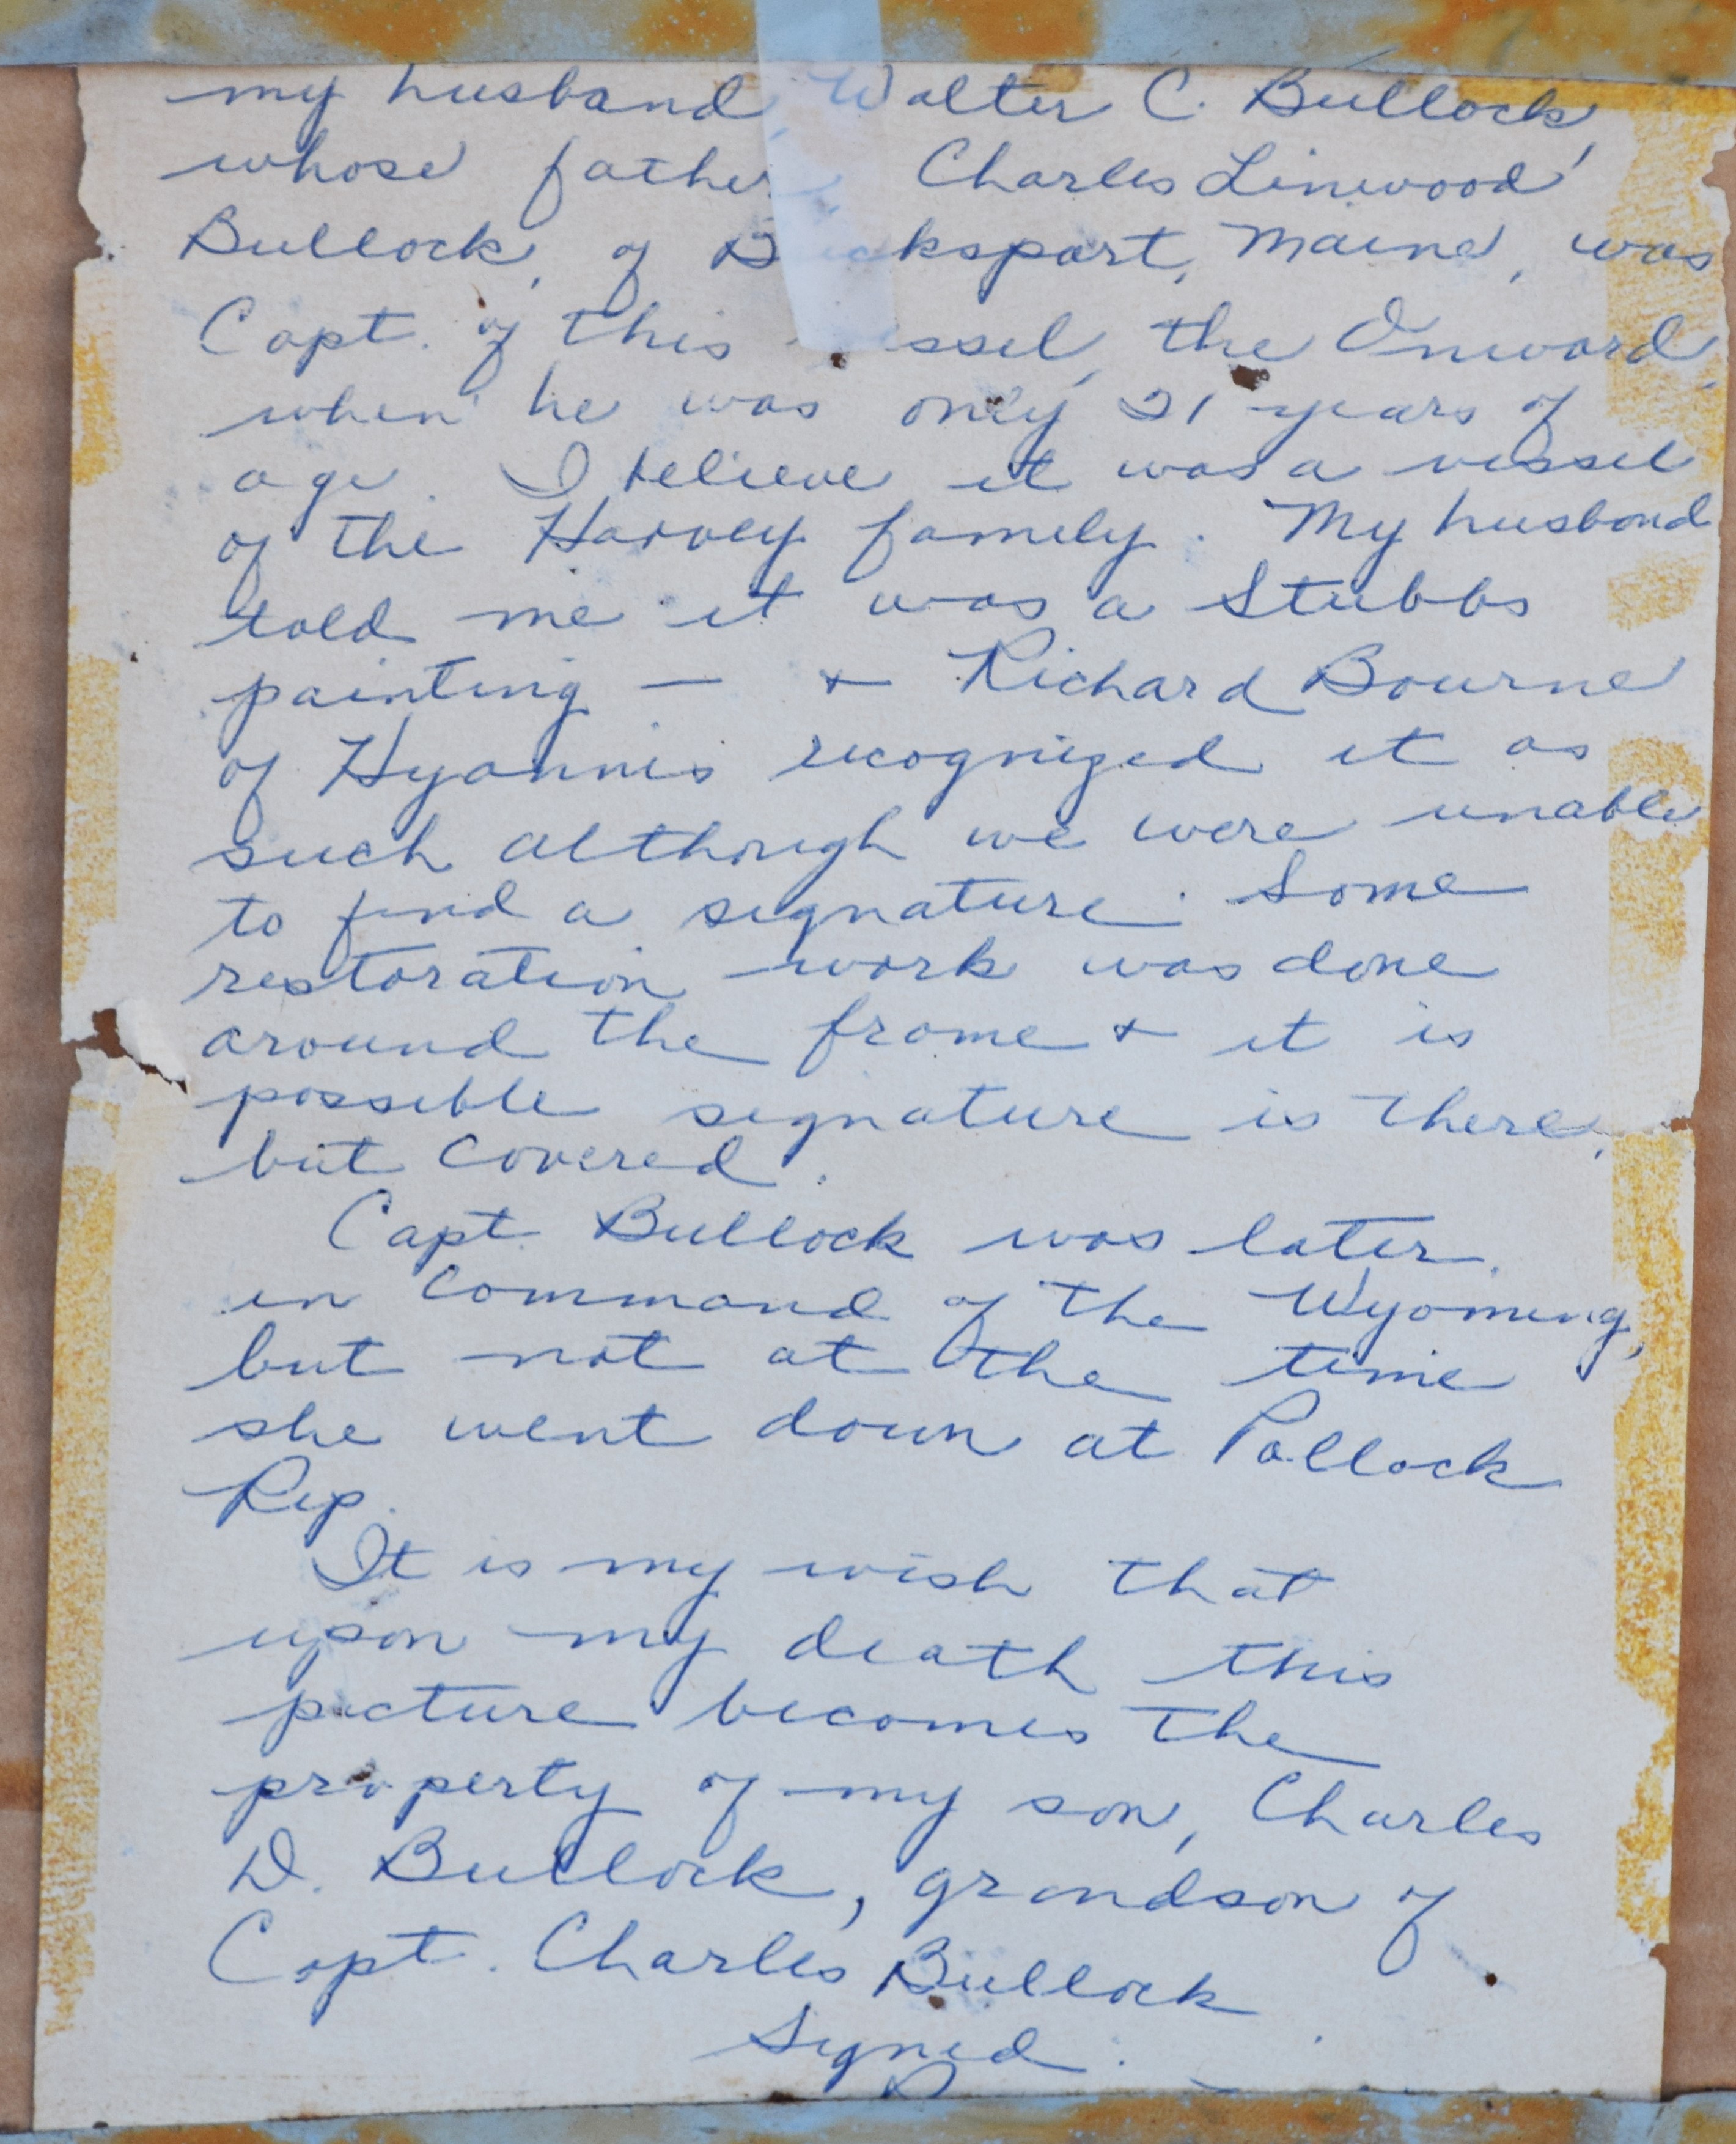 my husband, Walter C. Bullock,
whose father, Charles Linwood
Bullock, of Bucksport, Maine, was
Capt. of this vessel, the Onward,
when he was only 21 years of
age. I believe it was a vessel
of the Harvey family. My husband
told me it was a Stubbs
painting — + Richard Bourne
of Hyannis recognized it as
such although we were unable
to find a signature. Some
restoration work was done
around the frame + it is
possible signature is there,
but covered.
Capt. Bullock was later
in command of the Wyoming,
but not at the time
she went down at Pollock
Rip.
It is my wish that
upon my death this
picture becomes the
property of my son, Charles
D. Bullock, grandson of
Capt. Charles Bullock
Signed.